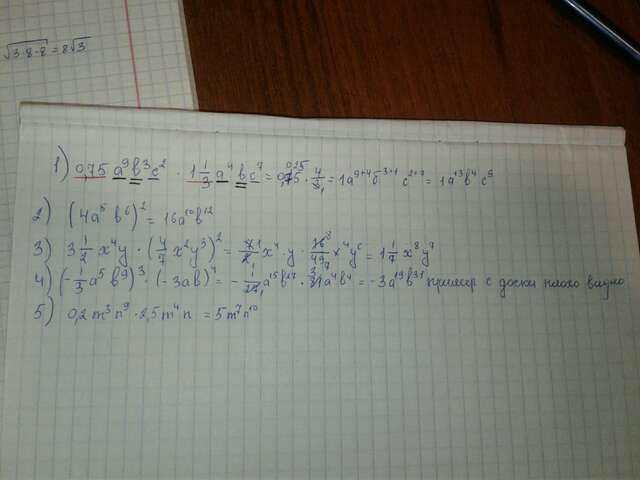 √3·8·8 = 8√3
1) 0,75 a⁹b³c² · 1 1/3 a⁴bc⁷ = 0,75 0,25 · 4/3, = 1a⁹⁺⁴b³⁺¹ c²⁺⁷ = 1a¹³b⁴c⁹
2) (4a⁵b⁶)² = 16a¹⁰b¹²
3) 3 1/2 x⁴y · (4/7 x²y³)² = 7 1/2 x⁴·y · 16 8/49 x⁴y⁶ = 1 1/7 x⁸y⁷
4) (-1/3 a⁵b⁹)³ · (-3ab)⁴ = -1/27, a¹⁵b²⁷ · 3 81 a⁴b⁴ = -3a¹⁹b³¹ пример с доски плохо видно
5) 0,2m³n⁹ · 2,5m⁴n = 5m⁷n¹⁰